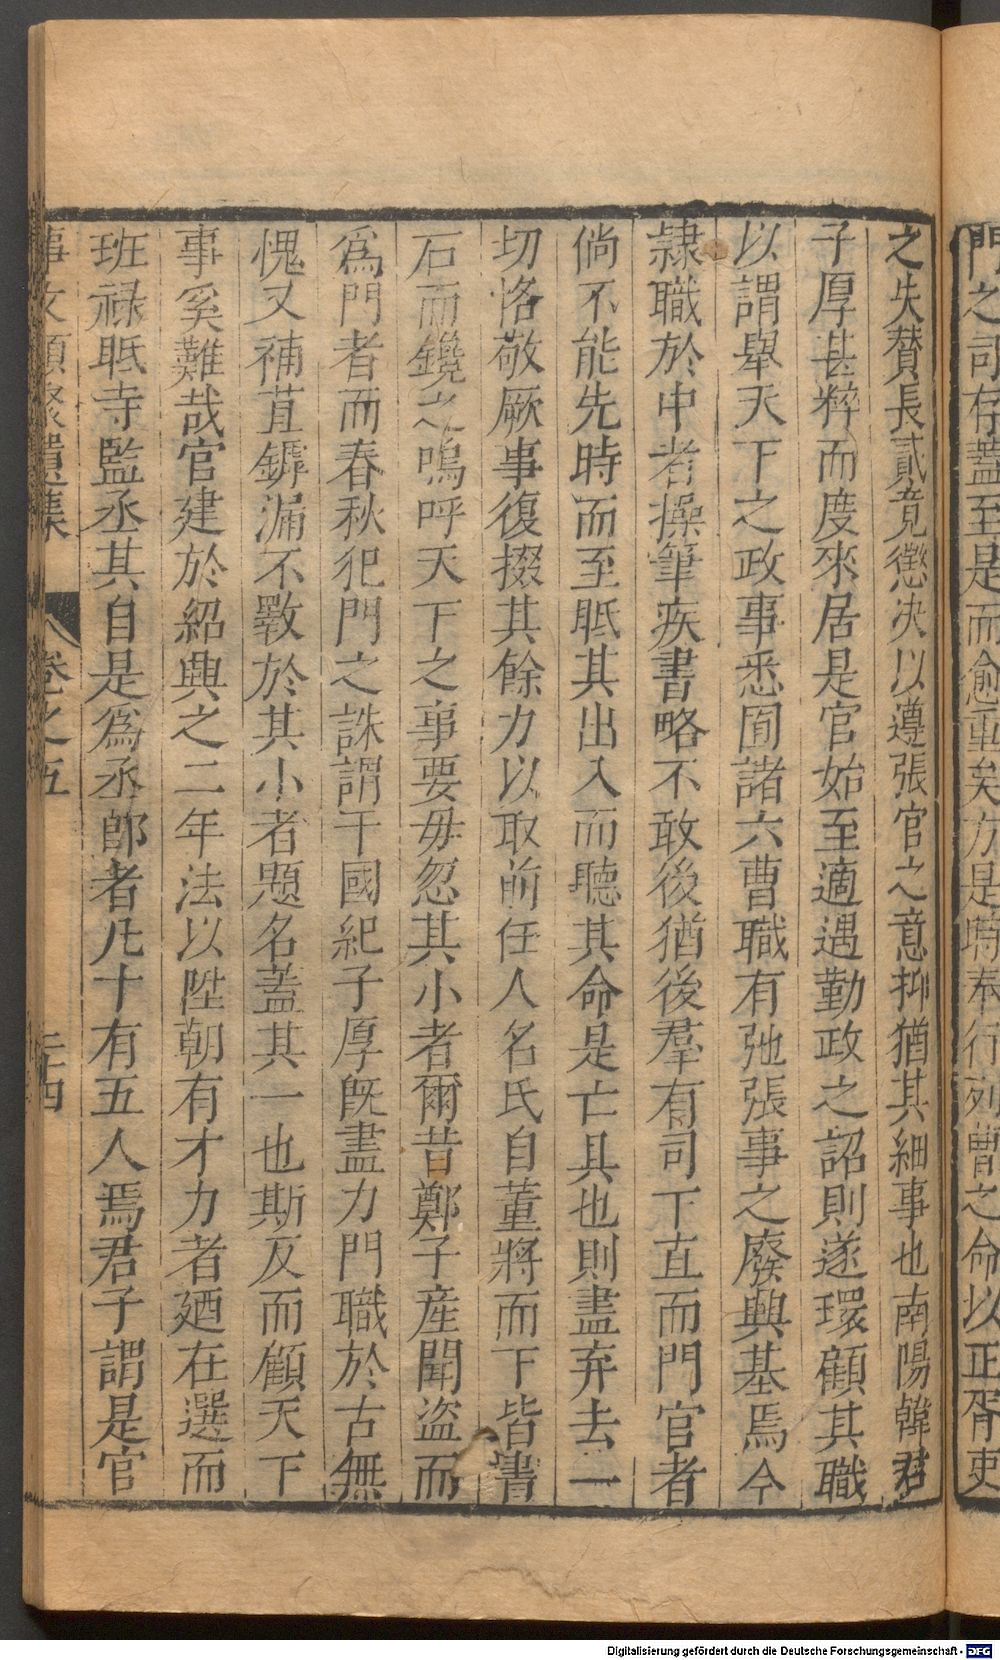 門之司存蓋至是而愈重矣方是時奉行列曹之命以正胥吏
之失贊長貳竟懲决以遵張官之意抑猶其細事也南陽韓君
子厚甚粹而度來居是官始至適遇勤政之詔則遂環顧其職
以謂舉天下之政事悉囿諸六曹職有弛張事之廢興基焉今
隷職於中者操筆疾書略不敢後猶後羣有司下直而門官者
倘不能先時而至眡其出入而聽其命是亡具也則盡弃去一
切恪敬厥事復掇其餘力以取前任人名氏自董將而下皆書
石而鑱之嗚呼天下之事要毋忽其小者爾昔鄭子產聞盗而
爲門者而春秋犯門之誅謂干國紀子厚旣盡力門職於古無
愧又補苴鏬漏不斁於其小者題名蓋其一也斯反而顧天下
事奚難哉官建於紹興之二年法以陞朝有才力者廼在選而
班祿眡寺監丞其自是爲丞郎者凡十有五人焉君子謂是官
事文類聚遺集 卷之五 二十四
Digitalisierung gefördert durch die Deutsche Forschungsgemeinschaft - DFG